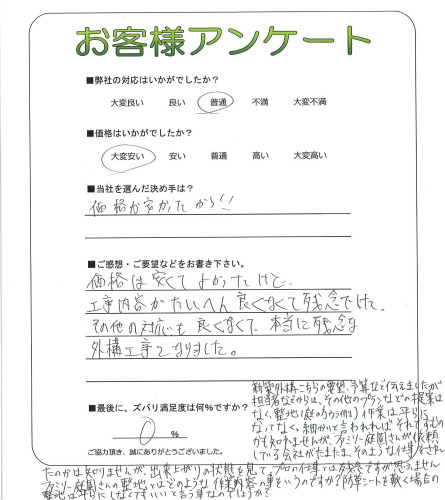 お客様アンケート
■弊社の対応はいかがでしたか?
大変良い 良い 普通 不満 大変不満
■価格はいかがでしたか?
大変安い 安い 普通 高い 大変高い
■当社を選んだ決め手は?
価格が安かったから!!
■ご感想・ご要望などをお書き下さい。
価格は安くてよかったけど、
工事内容がたいへん良くなくて残念でした。
その他の対応も良くなくて、本当に残念な
外構工事となりました。
■最後に、ズバリ満足度は何%ですか?
0 %
ご協力頂き、誠にありがとうございました。
新築外構こちらの要望、予算など伝えましたが
担当者などからは、その他のプランなどの提案は
なく、整地(庭の)作業は平らに
なってなく、細かいて言われればそれですむの
かも知れませんが、ファミリー庭園さんが依頼
している会社がたまたま、そのような仕事をされ
たのかは知りませんが、出来上がりの状態を見て、プロの仕事では残念ですが思えません
ファミリー庭園さんの整地ではどのような作業内容の事をいうのですか?防草シートを敷く場合の
整地は平らにしなくてもいいと言う事なのでしょうか?